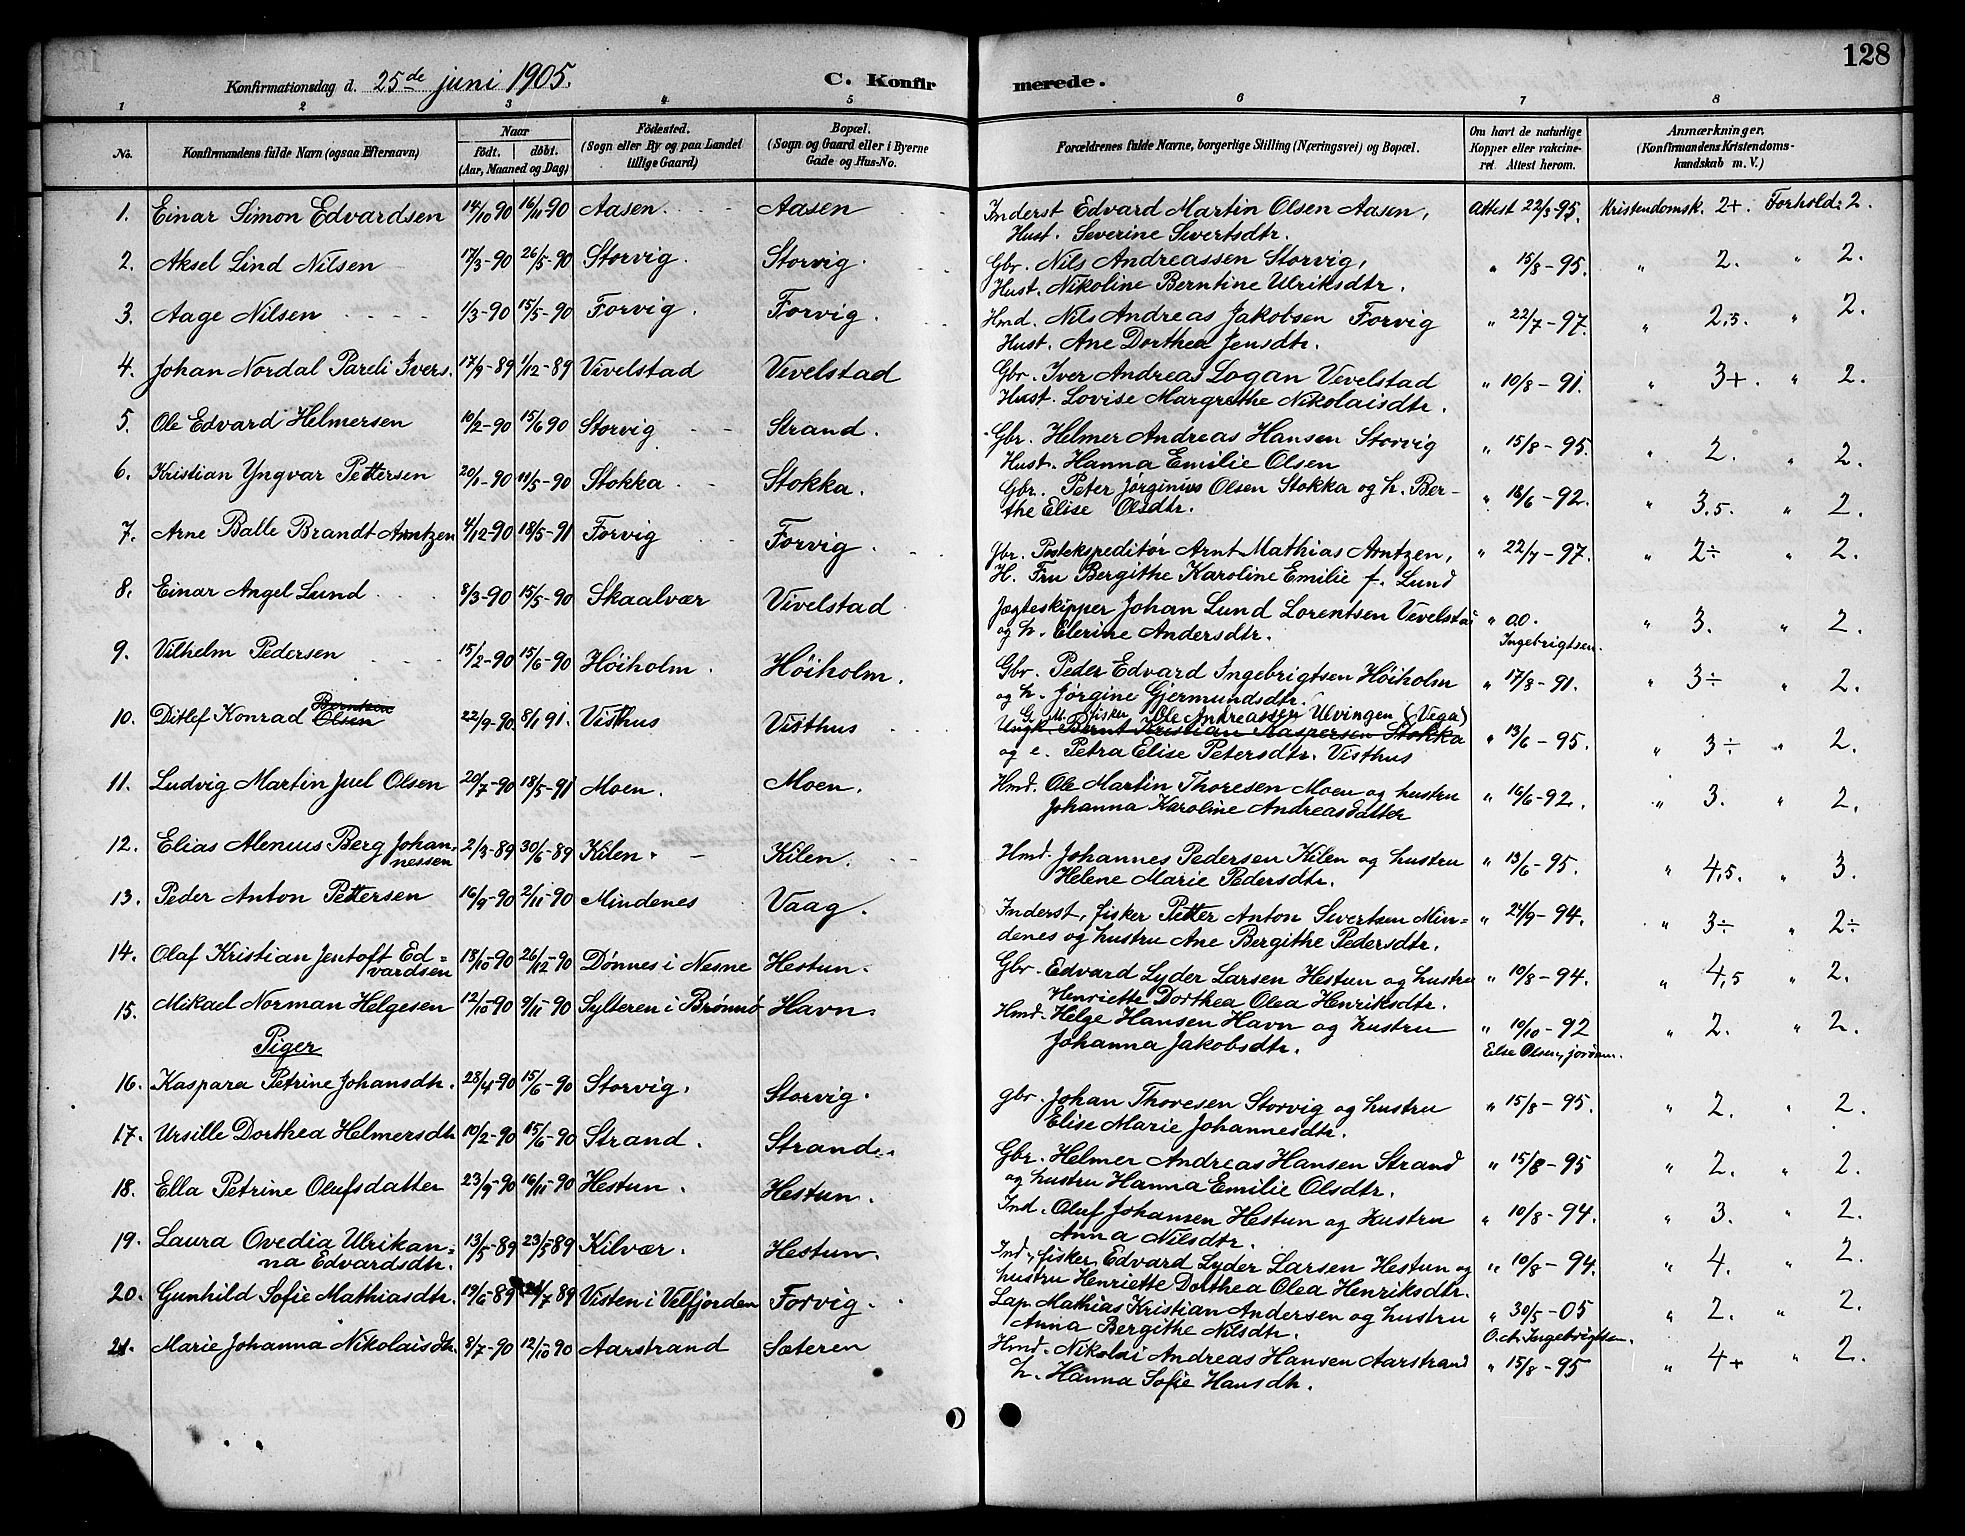 128
Konfirmationsdag d. 25de juni 1905. C. Konfirmerede.
1 2 3 4 5 6 7 8
No. Konfirmandens fulde Navn (ogsaa Efternavn) Naar født. døbt. (Aar, Maaned og Dag) Födested. (Sogn eller By og paa Landet tillige Gaard) Bopæl. (Sogn og Gaard eller i Byerne Gade og Hus-No. Forældrenes fulde Navne, borgerlige Stilling (Næringsvei) og Bopæl. Om havt de naturlige Kopper eller vakcineret. Attest herom. Anmærkninger. (Konfirmandens Kristendomskundskab m. V.)
1. Einar Simon Edvardsen 14/10 90 16/11-90 Aasen. Aasen Inderst Edvard Martin Olsen Aasen, Attest 22/3 95. Kristendomsk. 2+. Forhold: 2.
Hust. Severine Sivertsdtr.
2. Aksel Lind Nilsen 17/3-90 26/5-90 Storvig. Storvig. Gbr. Nils Andreassen Storvig, " 15/8-95. " 2. " 2.
Hust. Nikoline Berntine Ulriksdtr.
3. Aage Nilsen 1/3-90 15/5-90 Forvig. Forvig. Hmd. Nils Andreas Jakobsen Forvig " 22/7-97. " 2,5. " 2.
Hust. Ane Dorthea Jensdtr.
4. Johan Nordal Pareli Ivers. 17/9-89 1/12-89 Vivelstad Vevelstad Gbr. Iver Andreas Logan Vevelstad " 10/8-91. " 3+. " 2.
Hust. Lovise Margrethe Nikolaisdtr.
5. Ole Edvard Helmersen 10/2-90 15/6 90 Storvig Strand. Gbr. Helmer Andreas Hansen Storvig " 15/8-95. " 2. " 2.
Hust. Hanna Emilie Olsen
6. Kristian Yngvar Pettersen 20/1-90 11/5-90 Stokka Stokka. Gbr. Peter Jørginius Olsen Stokka og h. Ber- " 18/6-92. " 3.5. " 2.
the Elise Olsdtr.
7. Arne Balle Brandt Arntzen 4/12-90 18/5-91 Forvig Forvig. Gbr. Postekspeditør Arnt Mathias Arntzen, " 22/7-97. " 2÷ " 2.
H. Fru Bergithe Karoline Emilie f. Lund
8. Einar Angel Lund 8/3-90 15/5-90 Skaalvær Vivelstad Jægteskipper Johan Lund Lorentsen Vevelstad " " 3. " 2.
og h. Elerine Andersdtr. Ingebrigtsen.
9. Vilhelm Pedersen 15/2-90 15/6-90 Høiholm. Høiholm. Gbr. Peder Edvard Ingebrigtsen Høiholm " 17/8-91. " 3÷ " 2.
og h. Jørgine Gjermundsdtr.
10. Ditlef Konrad Berntsen Olsen 22/9-90. 8/1 91. Visthus Visthus G. M. fisker Ole Andreassen Ulvingen (Vega)
Ungk. Bernt Kristian Kaspersen Stokka " 13/6-95. " 3÷ " 2.
og e. Petra Elise Petersdtr. Visthus
11. Ludvig Martin Juel Olsen 20/7-90 18/5-91 Moen. Moen. Hmd. Ole Martin Thoresen Moen og hustru " 16/6-92. " 3. " 2.
Johanna Karoline Andreasdatter
12. Elias Alenius Berg Johannessen 2/3-89 30/6-89 Kilen. Kilen. Hmd. Johannes Pedersen Kilen og hustru " 13/6-95. " 4,5. " 3.
Helene Marie Pedersdtr.
13. Peder Anton Pettersen 16/9-90 2/11-90 Mindenes Vaag. Inderst, fisker Petter Anton Sivertsen Min- " 24/9-94. " 3÷ " 2÷
denes og hustru Ane Bergithe Pedersdtr.
14. Olaf Kristian Jentoft Edvardsen 18/10-90 26/12-90 Dønnes i Nesne Hestun. Gbr. Edvard Lyder Larsen Hestun og hustru " 10/8-94. " 4,5 " 2.
Henriette Dorthea Olea Henriksdtr.
15. Mikael Norman Helgesen 12/10-90 9/11 90 Sylteren i Brønnø Havn. Hmd. Helge Hansen Havn og hustru " 10/10-92 " 2. " 2.
Johanna Jakobsdtr. Else Olsen, jordm.
Piger
16. Kaspara Petrine Johansdtr. 28/4-90 15/6-90 Storvig. Storvig. gbr. Johan Thoresen Storvig og hustru " 15/8-95. " 2. " 2.
Elise Marie Johannesdtr.
17. Ursille Dorthea Helmersdtr 10/2-90 15/6-90 Strand. Strand. Gbr. Helmer Andreas Hansen Strand " 15/8-95 " 2. " 2.
og hustru Hanna Emilie Olsdtr.
18. Ella Petrine Olufsdatter 23/9-90 16/11-90 Hestun. Hestun. Ind. Oluf Johansen Hestun og hustru " 10/8-94. " 3. " 2.
Anna Nilsdtr.
19. Laura Ovedia Ulrikanna Edvardsdtr. 13/5-89 23/5 89 Kilvær. Hestun. Ind., fisker Edvard Lyder Larsen Hestun og " 10/8-94. " 4. " 2.
hustru Henriette Dorthea Olea Henriksdtr.
20. Gunhild Sofie Mathiasdtr. 19/6-89 /7 89 Visten i Velfjorden Forvig. Lap Mathias Kristian Andersen og hustru " 30/5-05 " 2. " 2.
Anna Bergithe Nilsdtr. O. A. Ingebrigtsen.
21. Marie Johanna Nikolaisdtr. 8/7-90 12/10 90 Aarstrand Sæteren Hmd. Nikolai Andreas Hansen Aarstrand " 15/8-95 " 4+ " 2.
h. Hanna Sofie Hansdtr.